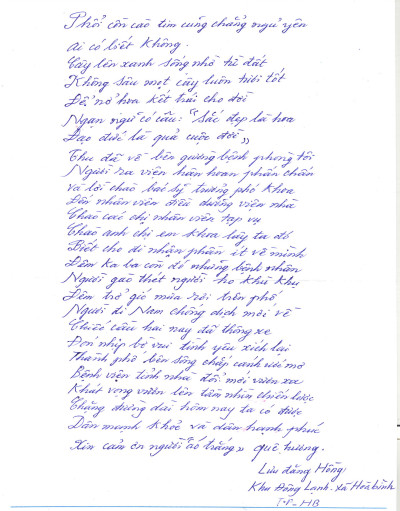 Phổi còn cao tim cũng chẳng ngủ yên
Ai có biết không.
Cây lên xanh sống nhờ từ đất
Không sâu mọt cây luôn tươi tốt
Để nở hoa kết trái cho đời
Ngạn ngữ có câu: "Sắc đẹp là hoa
Đạo đức là quả cuộc đời"
Thu đã về bên giường bệnh phòng tôi
Người ra viện hân hoan phấn chấn
và lời chào bác sỹ trưởng phó khoa
Đến nhân viên điều dưỡng viên nhà
Chào các chị nhân viên tạp vụ
Chào anh chị em khoa lây ta đó
Biết cho đi nhận phần ít về mình
Đêm ka ba còn đó những bệnh nhân
Người gào thét người ho khù khụ
Đêm trở gió mùa rơi trên phố
Người đi Nam chống dịch mới về
Chiếc cầu hai nay đã thông xe
Đón nhịp bề vui tình yêu xích lại
Thành phố bên sông chắp cánh ước mơ
Bệnh viện tỉnh nhà đổi mới viên xa
Khát vọng viên lên tầm nhìn chiến lược
Chặng đường dài hôm nay ta có được
Dân mạnh khoẻ và dân hạnh phúc
Xin cảm ơn người "áo trắng" quê hương.
Lưu đăng Hồng
Khu Đồng Lạnh - xã Hoà bình
T.P - HB